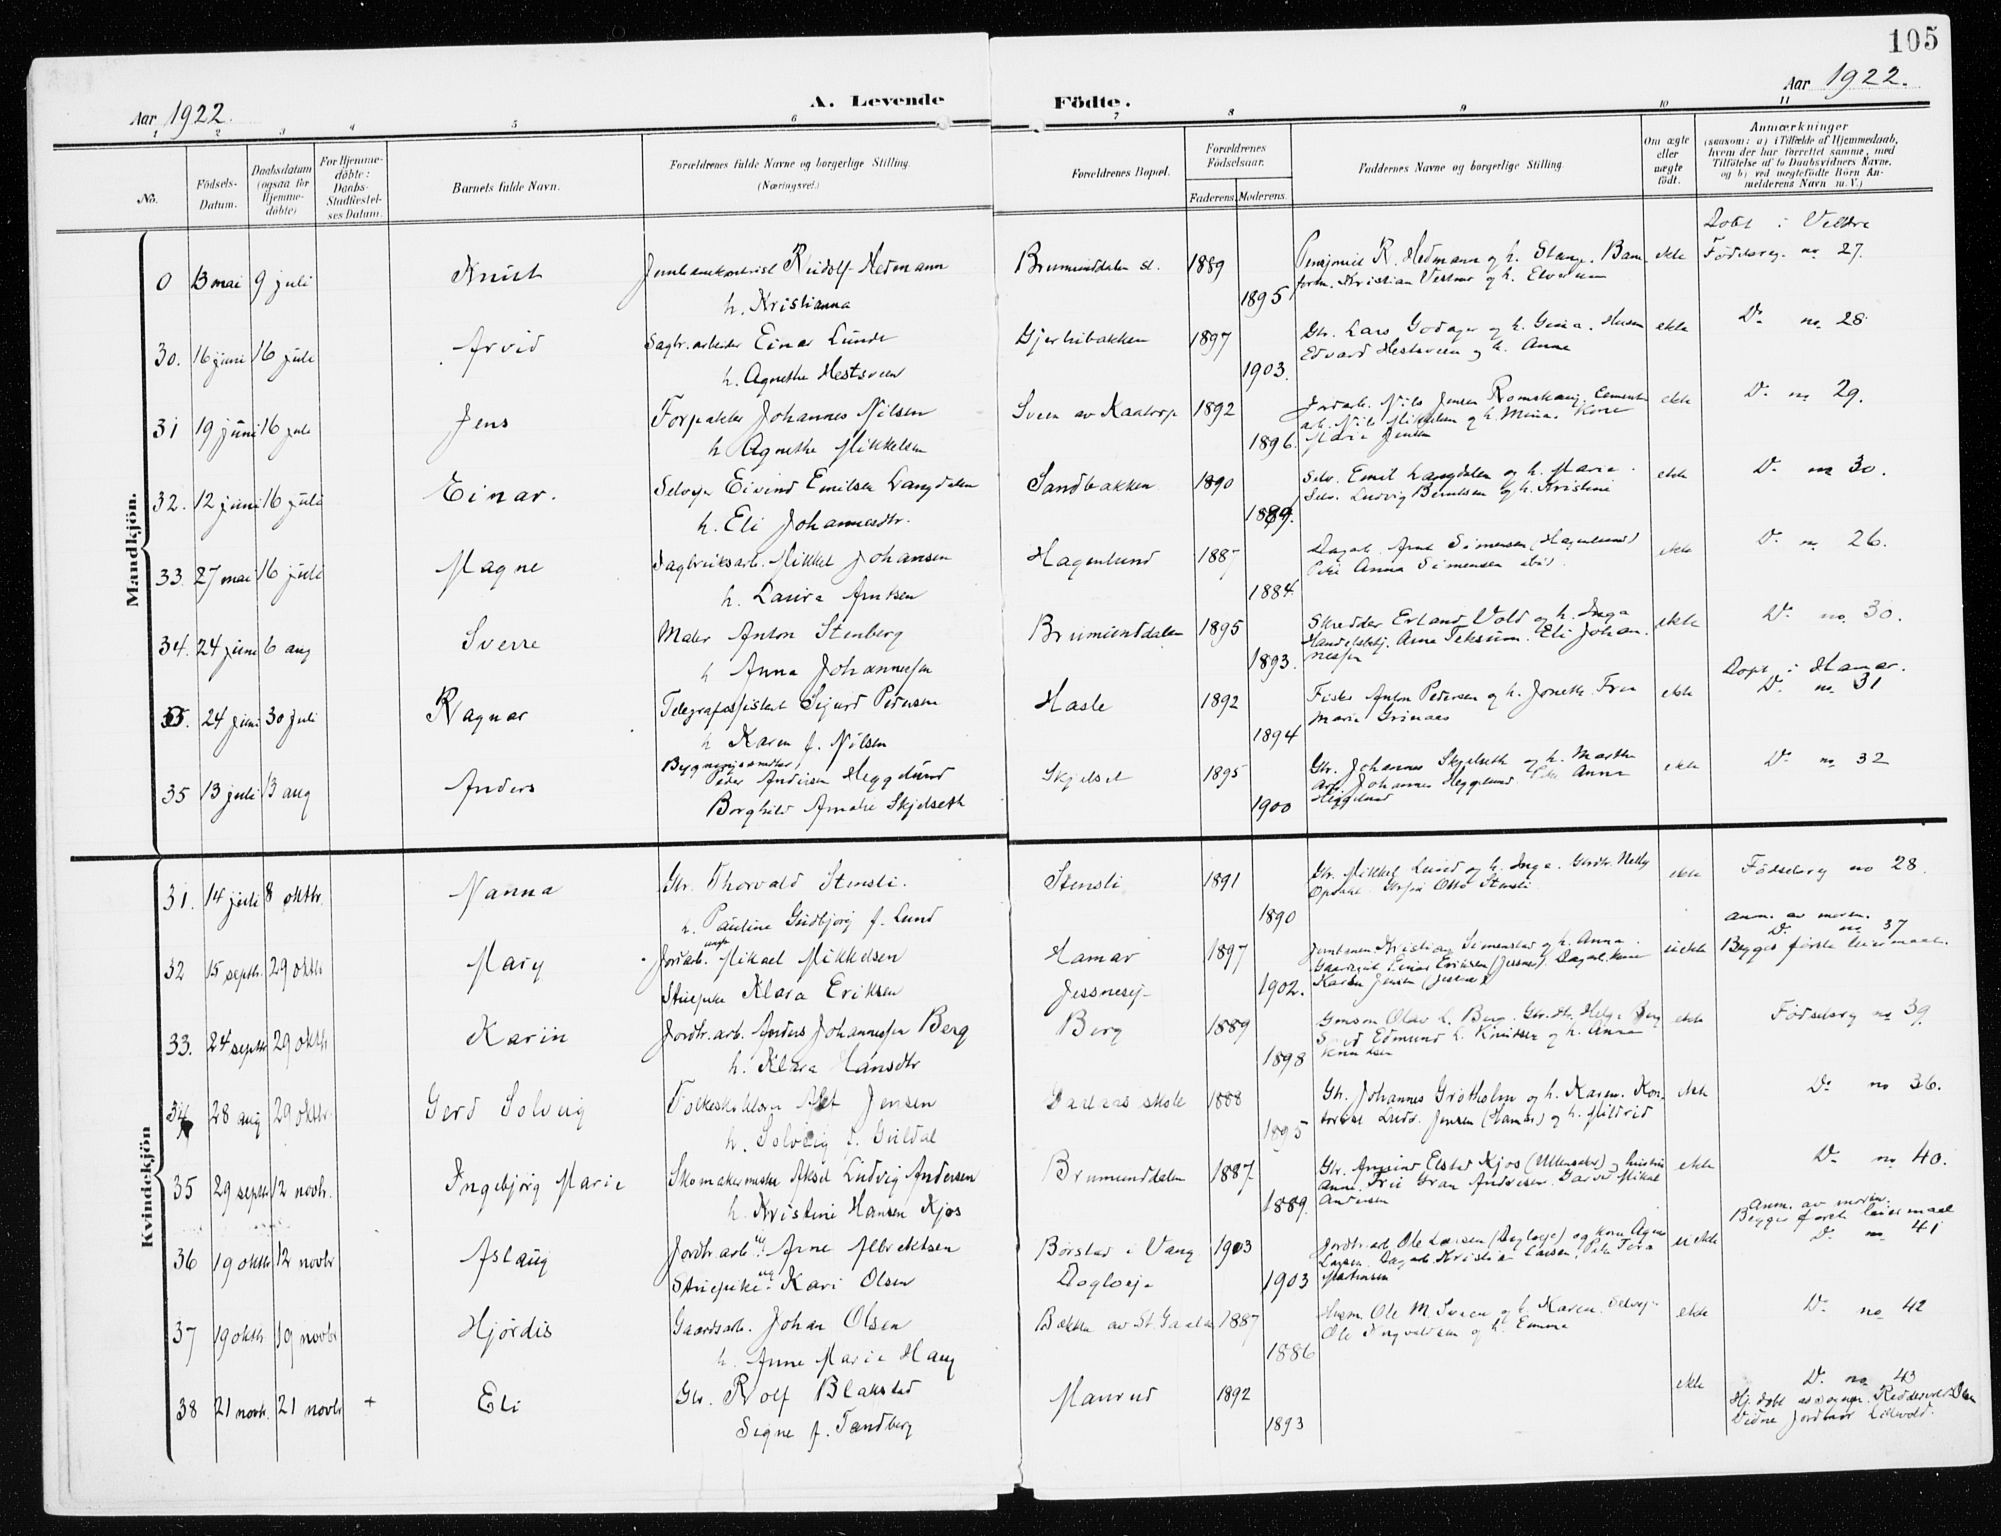 105
Aar 1922.
A. Levende
Födte.
Aar 1922.
1 2 3 4 5 6 7 8 9 10 11
No.
Födsels-
Datum.
Daabsdatum
(ogsaa for
Hjemme-
döbte)
For Hjemme-
döbte:
Daabs-
Stadfæstel-
ses Datum.
Barnets fulde Navn.
Forældrenes fulde Navne og borgerlige Stilling.
(Næringsvei.)
Forældrenes Bopæl.
Forældrenes
Födselsaar.
Faderens. Moderens.
Faddernes Navne og borgerlige Stilling.
Om ægte
eller
uægte
födt.
Anmærkninger
(saasom: a) i Tilfælde af Hjemmedaab,
hvem der har forrettet samme, med
Tilföielse af to Daabsvidners Navne,
og b) ved uægtefödte Börn An-
melderens Navn m. V.)
Mandkjön.
Døbt i Veldre
0 13 mai 9 juli Knut Rudolf Hedmann Brumunddalen st. 1889 R. Hedmann og h. Stang. ekte Fødselsreg. no 27.
h. Kristianna 1895 Kristian og h. Elverum
30. 16 juni 16 juli Arvid Sagbr.arbeider Einar Lunde Gjerlubakken 1897 Gbr. Lars Godager og h. Gina. ekte Do no 28
h. Agnethe Hestsveen 1903. Edvard Hestsveen og h. Anne
31 19 juni 16 juli Jens Forpakter Johannes Nilsen Sveen av Kaatorp 1892 Jordarb. Nils Jensen ekte Do no 29.
h Agnethe Mikkelsen 1896. arb. Nils Mikkelsen og h. Mina. Kone Marie Jensen
32. 12 juni 16 juli Einar. Selveier Eivind Emilsen Langdalen Sandbakken 1890 Selv. Emil Langdalen og h. Maria. ekte Do no 30.
h. Eli Johannesdtr. 1889. Selv. Ludvig Berntsen og h. Kristine
33. 27 mai 16 juli Magne Sagbruksarb. Mikkel Johansen Hagenlund 1887 Dagarb. Arne Simensen (Hagenlund) ekte Do no 26.
h. Laura Arntsen 1884. Pike Anna Simensen ibid
34. 24 juni 6 aug Sverre Maler Anton Stenberg Brumunddalen 1895 Skredder Erland Vold og h. Inga ekte Do no. 30.
h Anna Johannessen 1893. Handelsbetj. Arne Teksum. Eli Johan-
nessen
Døpt i Hamar.
35. 24 juni 30 juli Ragnar Telegrafassistent Sigurd Pedersen Hasle 1892 Anton Pedersen og h. Jonette. Fru ekte Do no 31
h Karen f. Nilsen 1894 Marie
35 13 juli 13 aug Anders Peder Andersen Heggelund Skjelset 1895 Gbr. Johannes Skjelseth og h. Marthe ekte Do no 32
Borghild Amalie Skjelseth 1900 Arb. Johannes Heggelund Pike Anna
Heggelund
Kvindekjön
31. 14 juli 8 oktbr. Nanna Gbr. Thorvald Stensli. Stensli 1891 Gbr. Mikkel Lund og h. Inga. Nelly ekte Fødselsreg no 28.
h. Pauline Gudbjørg f. Lund 1890 Opdahl. Otto Stensli
Anm. av moren.
Do no 37
32 15 septbr. 29 oktbr Mary Jordarb. ungk. Mikael Mikkelsen Hamar 1897 Kristian Simenstad og h. Anna. uekte Begges første leiermaal.
Stuepike Klara Eriksen Jessnesej. 1902. Einar Eriksen (Jessnes). Dagarb.kone
Karen Jensen (Jessnes)
33. 24 septbr 29 oktbr Karin Jordbr.arb. Anders Johannessen Berg Berg 1889 Olav L. Berg. Gbr.dtr. Helga Berg ekte Fødselsreg no 39.
h. Klara Hansdtr 1898 Edmund L. Knutsen og h. Anna
Knutsen
34 28 aug 29 oktbr. Gerd Solveig Folkeskolelærer Alf Jensen skole 1888 Gbr. Johannes Grotholm og h. Karen. Kon- ekte Do no 36.
h. Solveig f. Guldal 1895 torist Jensen (Hamar) og h. Mildrid
35 29 septbr 12 novbr. Ingebjørg Marie Skomakermester Aksel Ludvig Andersen Brumunddalen 1887 Gbr. Elstad Kjos (Ullensaker) ekte Do no 40.
h. Kristine Hansen Kjos 1889. Anne. Frk Gran Andersen. Mikal
Andersen
Anm. av moren.
Begges første leiermaal
36 19 oktbr 12 novbr Aslaug Jordbr.arb. ug. Arne Albrektsen Børstad i Vang 1903 Jordbr.arb. Ole Larsen (Dogloeje) og kone Agnes uekte Do no 41
Stuepike ug. Kari Olsen Dogloeje 1903 Larsen. Dagarb. Kristian Larsen. Pike Tora
Martinsen
37 19 oktbr 19 novbr Hjørdis Gaardsarb. Johan Olsen Bakken av St. 1887 Husm. Ole M. Sveen og h. Karen. Selvej. ekte Do no 42
h. Anne Marie Haug 1886 Ole Ingvaldsen og h. Emma
38 21 novbr. 21 novbr + Eli Gbr. Rolf Blakstad Maurud 1892 ekte Do no 43
Signe f. Sandberg 1893 Hj. døbt av
Vidne Jordmor Lillevold.